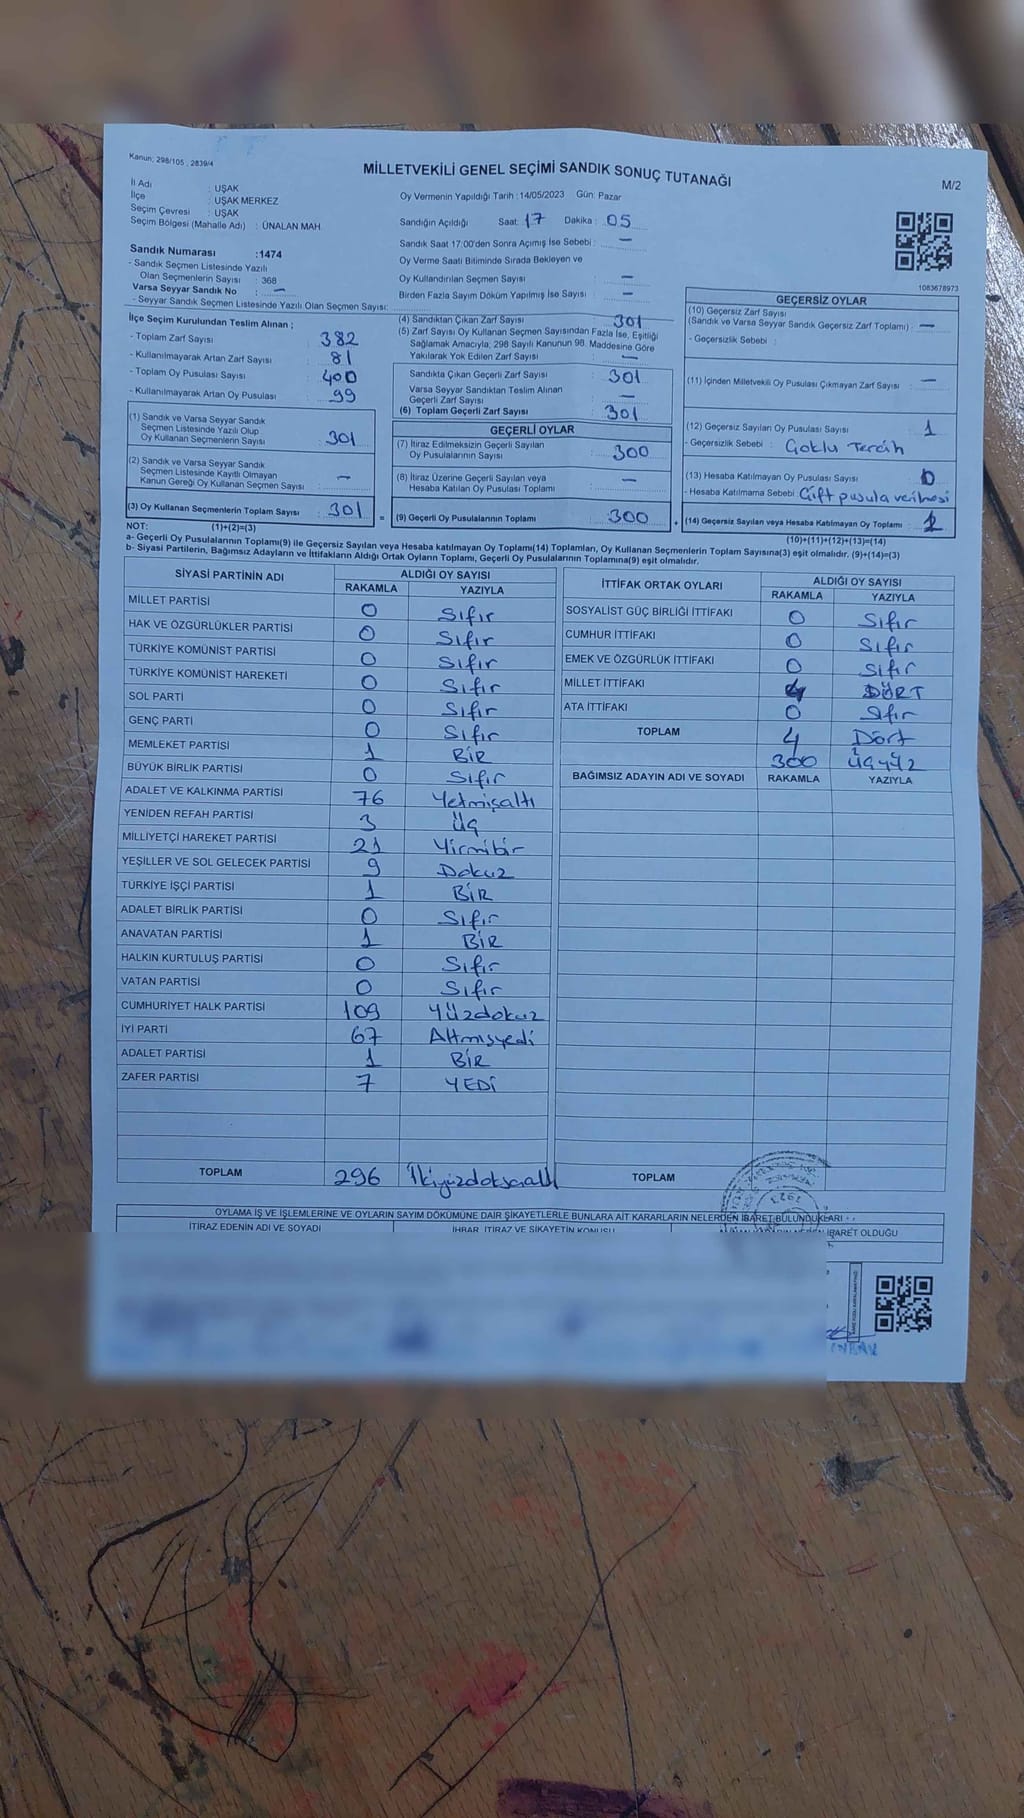 Kanun: 298/105 , 2839/4
MİLLETVEKİLİ GENEL SEÇİMİ SANDIK SONUÇ TUTANAĞI
M/2
İl Adı : UŞAK
İlçe : UŞAK MERKEZ
Seçim Çevresi : UŞAK
Seçim Bölgesi (Mahalle Adı) : ÜNALAN MAH.
Oy Vermenin Yapıldığı Tarih :14/05/2023 Gün: Pazar
Sandığın Açıldığı Saat: 17 Dakika : 05
Sandık Saat 17:00'den Sonra Açımış İse Sebebi : —
Oy Verme Saati Bitiminde Sırada Bekleyen ve
Oy Kullandırılan Seçmen Sayısı —
Birden Fazla Sayım Döküm Yapılmış İse Sayısı —
Sandık Numarası :1474
- Sandık Seçmen Listesinde Yazılı
Olan Seçmenlerin Sayısı : 368
Varsa Seyyar Sandık No : —
- Seyyar Sandık Seçmen Listesinde Yazılı Olan Seçmen Sayısı:
1083678973
İlçe Seçim Kurulundan Teslim Alınan ;
- Toplam Zarf Sayısı : 382
- Kullanılmayarak Artan Zarf Sayısı : 81
- Toplam Oy Pusulası Sayısı : 400
- Kullanılmayarak Artan Oy Pusulası : 99
(1) Sandık ve Varsa Seyyar Sandık
Seçmen Listesinde Yazılı Olup
Oy Kullanan Seçmenlerin Sayısı : 301
(2) Sandık ve Varsa Seyyar Sandık
Seçmen Listesinde Kayıtlı Olmayan
Kanun Gereği Oy Kullanan Seçmen Sayısı : —
(3) Oy Kullanan Seçmenlerin Toplam Sayısı : 301
(1)+(2)=(3)
(4) Sandıktan Çıkan Zarf Sayısı : 301
(5) Zarf Sayısı Oy Kullanan Seçmen Sayısından Fazla İse, Eşitliği
Sağlamak Amacıyla, 298 Sayılı Kanunun 98. Maddesine Göre
Yakılarak Yok Edilen Zarf Sayısı : —
Sandıkta Çıkan Geçerli Zarf Sayısı : 301
Varsa Seyyar Sandıktan Teslim Alınan
Geçerli Zarf Sayısı : —
(6) Toplam Geçerli Zarf Sayısı : 301
GEÇERLİ OYLAR
(7) İtiraz Edilmeksizin Geçerli Sayılan
Oy Pusulalarının Sayısı : 300
(8) İtiraz Üzerine Geçerli Sayılan veya
Hesaba Katılan Oy Pusulası Toplamı : —
= (9) Geçerli Oy Pusulalarının Toplamı : 300 +
GEÇERSİZ OYLAR
(10) Geçersiz Zarf Sayısı
(Sandık ve Varsa Seyyar Sandık Geçersiz Zarf Toplamı) : —
- Geçersizlik Sebebi :
(11) İçinden Milletvekili Oy Pusulası Çıkmayan Zarf Sayısı : —
(12) Geçersiz Sayılan Oy Pusulası Sayısı : 1
- Geçersizlik Sebebi : Çoklu Tercih
(13) Hesaba Katılmayan Oy Pusulası Sayısı :
- Hesaba Katılmama Sebebi : Çift pusula verilmesi
(14) Geçersiz Sayılan veya Hesaba Katılmayan Oy Toplamı :
(10)+(11)+(12)+(13)=(14)
NOT:
a- Geçerli Oy Pusulalarının Toplamı(9) ile Geçersiz Sayılan veya Hesaba katılmayan Oy Toplamı(14) Toplamları, Oy Kullanan Seçmenlerin Toplam Sayısına(3) eşit olmalıdır. (9)+(14)=(3)
b- Siyasi Partilerin, Bağımsız Adayların ve İttifakların Aldığı Ortak Oyların Toplamı, Geçerli Oy Pusulalarının Toplamına(9) eşit olmalıdır.
SİYASİ PARTİNİN ADI ALDIĞI OY SAYISI
RAKAMLA YAZIYLA
MİLLET PARTİSİ 0 Sıfır
HAK VE ÖZGÜRLÜKLER PARTİSİ 0 Sıfır
TÜRKİYE KOMÜNİST PARTİSİ 0 Sıfır
TÜRKİYE KOMÜNİST HAREKETİ 0 Sıfır
SOL PARTİ 0 Sıfır
GENÇ PARTİ 0 Sıfır
MEMLEKET PARTİSİ 1 BİR
BÜYÜK BİRLİK PARTİSİ 0 Sıfır
ADALET VE KALKINMA PARTİSİ 76 Yetmişaltı
YENİDEN REFAH PARTİSİ 3 Üç
MİLLİYETÇİ HAREKET PARTİSİ 21 Yirmibir
YEŞİLLER VE SOL GELECEK PARTİSİ 9 Dokuz
TÜRKİYE İŞÇİ PARTİSİ 1 BİR
ADALET BİRLİK PARTİSİ 0 Sıfır
ANAVATAN PARTİSİ 1 BİR
HALKIN KURTULUŞ PARTİSİ 0 Sıfır
VATAN PARTİSİ 0 Sıfır
CUMHURİYET HALK PARTİSİ 109 Yüzdokuz
İYİ PARTİ 67 Altmışyedi
ADALET PARTİSİ 1 BİR
ZAFER PARTİSİ 7 YEDİ
TOPLAM 296 İkiyüzdoksanaltı
İTTİFAK ORTAK OYLARI ALDIĞI OY SAYISI
RAKAMLA YAZIYLA
SOSYALİST GÜÇ BİRLİĞİ İTTİFAKI 0 Sıfır
CUMHUR İTTİFAKI 0 Sıfır
EMEK VE ÖZGÜRLÜK İTTİFAKI 0 Sıfır
MİLLET İTTİFAKI 4 DÖRT
ATA İTTİFAKI 0 Sıfır
TOPLAM 4 Dört
300 Üçyüz
BAĞIMSIZ ADAYIN ADI VE SOYADI RAKAMLA YAZIYLA
TOPLAM
OYLAMA İŞ VE İŞLEMLERİNE VE OYLARIN SAYIM DÖKÜMÜNE DAİR ŞİKAYETLERLE BUNLARA AİT KARARLARIN NELERDEN İBARET BULUNDUKLARI
İTİRAZ EDENİN ADI VE SOYADI İHBAR, İTİRAZ VE ŞİKAYETİN KONUSU İBARET OLDUĞU